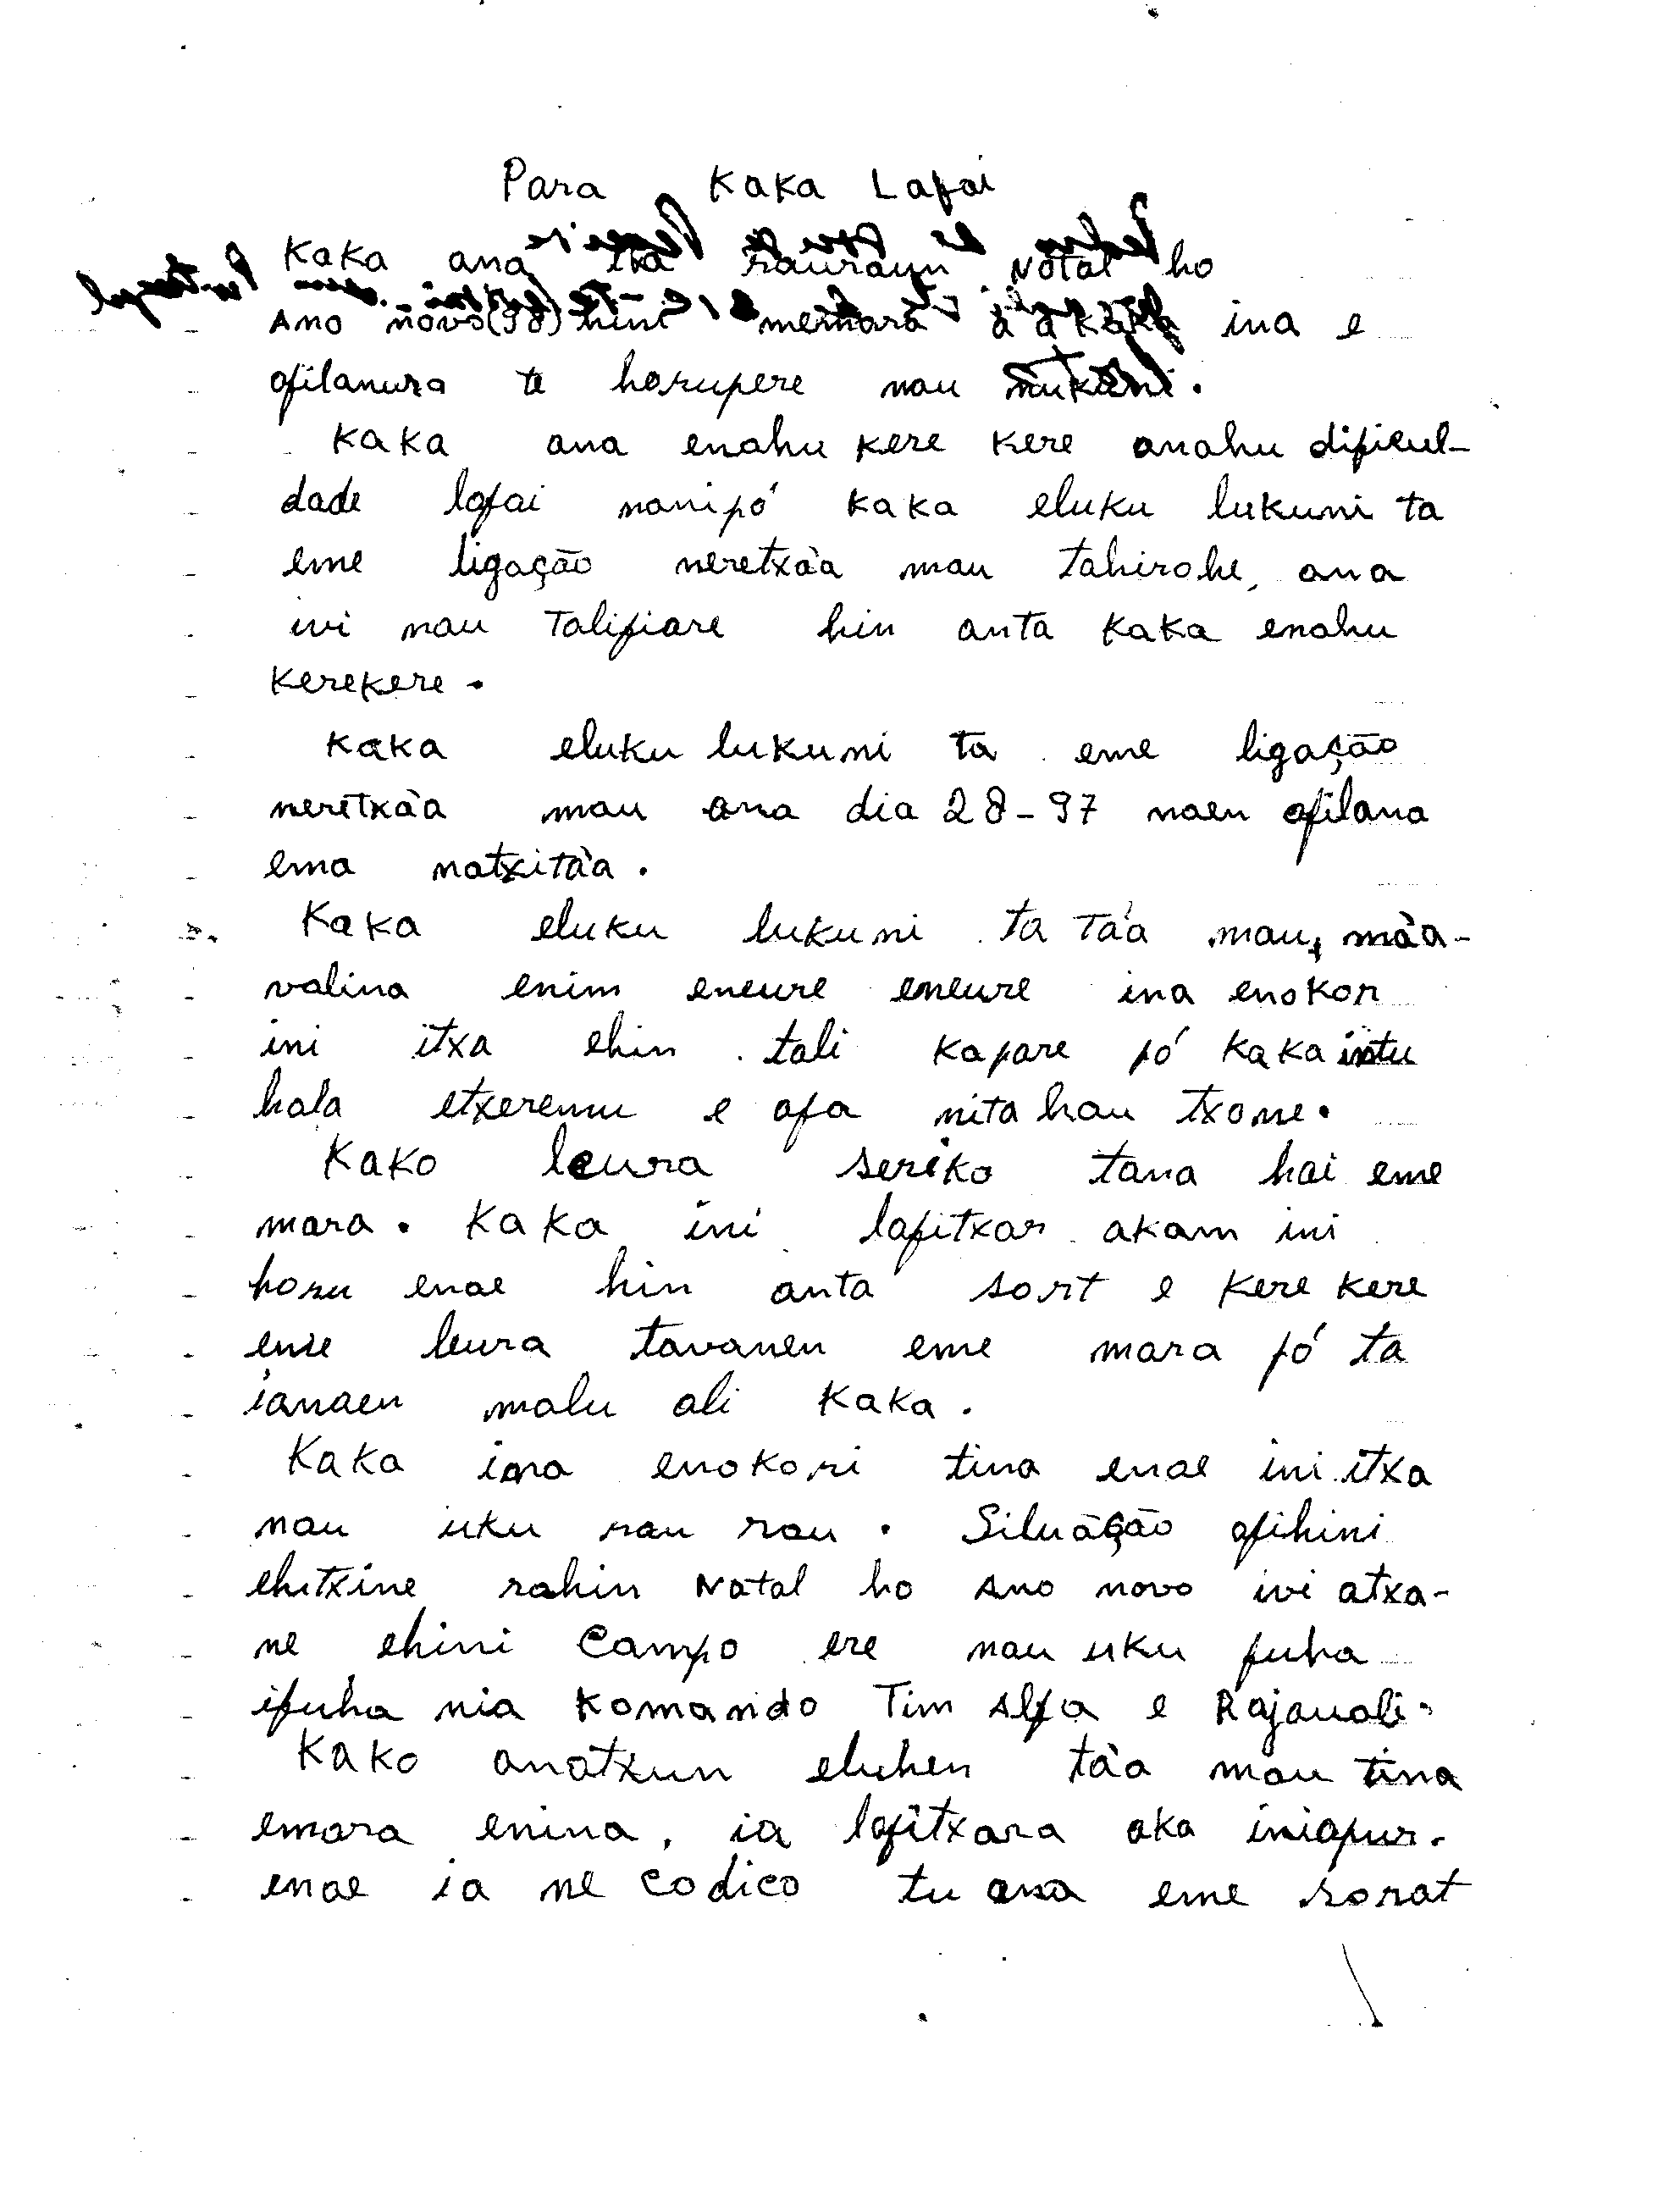 Para Kaka Lafai
Kaka ana itxa rauraun Natal ho
Ano novo(98) hini memara a a kaka ina e
afilanura te horupere nau
Kaka ana enahu kere kere anahu dificul-
dade lafai nanipó kaka eluku lukuni ta
eme ligação neretxàa mau tahirohe, ana
ivi nau Talifiare hin anta kaka enahu
kerekere.
Kaka eluku lukuni ta eme ligação
neretxàa mau ana dia 28-97 naen afilana
ema natxitàa.
Kaka eluku lukuni ta Tàa mau, màa-
valina enim eneure eneure ina enokor
ini itxa ehin tali kapare pó kaka intu
hala etxeremu e afa nita hau txone.
Kako leura seriko tana hai eme
mara. Kaka ini lafitxar akam ini
horu enae hin anta sort e kere kere
enie leura tavanen eme mara pó ta
ianaen malu ali kaka.
Kaka ina enokori tina enae ini itxa
nau uku rau rau. Siluação afihini
ehitxine rahin Natal ho Ano novo ivi atxa-
ne ehini Campo ere nau uku fuha
ifuha nia Komando Tim Alfa e Rajauali.
Kako anatxun eluhen tàa mau tina
emara enina, ia lafitxara aka iniapur.
enae ia ne codico tu ana eme sorat